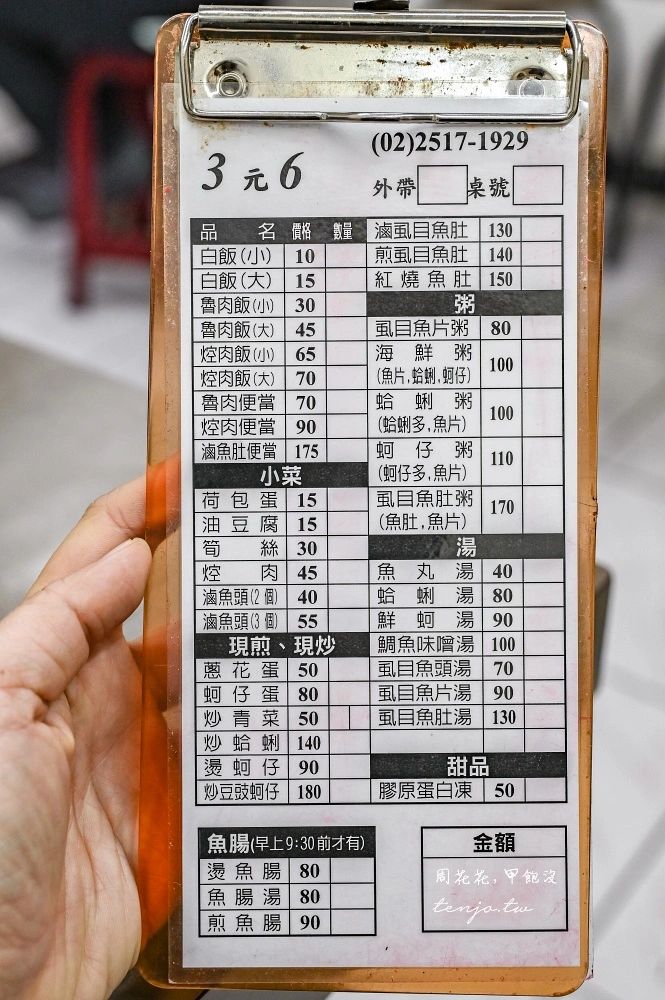 (02)2517-1929
3元6
外帶 桌號
品名 價格 數量
白飯(小) 10
白飯(大) 15
魯肉飯(小) 30
魯肉飯(大) 45
焢肉飯(小) 65
焢肉飯(大) 70
魯肉便當 70
焢肉便當 90
滷魚肚便當 175
小菜
荷包蛋 15
油豆腐 15
筍絲 30
焢肉 45
滷魚頭(2個) 40
滷魚頭(3個) 55
現煎、現炒
蔥花蛋 50
蚵仔蛋 80
炒青菜 50
炒蛤蜊 140
燙蚵仔 90
炒豆豉蚵仔 180
滷虱目魚肚 130
煎虱目魚肚 140
紅燒魚肚 150
粥
虱目魚片粥 80
海鮮粥 100
(魚片,蛤蜊,蚵仔)
蛤蜊粥 100
(蛤蜊多,魚片)
蚵仔粥 110
(蚵仔多,魚片)
虱目魚肚粥 170
(魚肚,魚片)
湯
魚丸湯 40
蛤蜊湯 80
鮮蚵湯 90
鯛魚味噌湯 100
虱目魚頭湯 70
虱目魚片湯 90
虱目魚肚湯 130
甜品
膠原蛋白凍 50
魚腸(早上9:30前才有)
燙魚腸 80
魚腸湯 80
煎魚腸 90
金額
周花花,甲飽沒
tenjo.tw